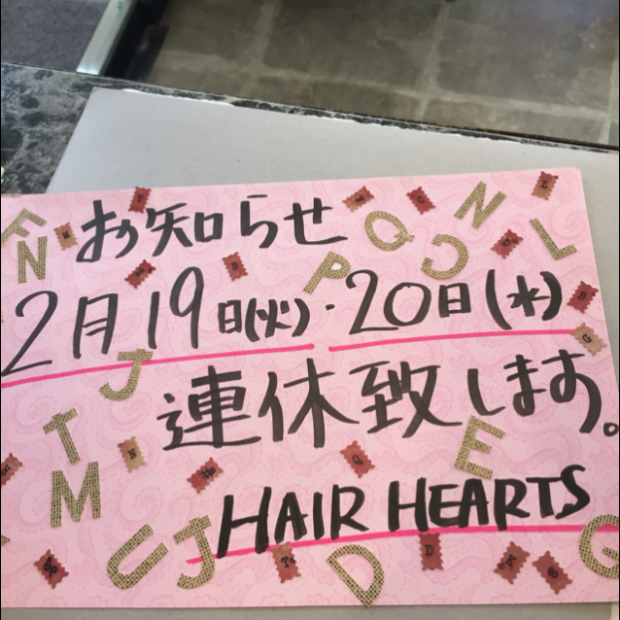 お知らせ
2月19日(火)・20日(水)
連休致します。
HAIR HEARTS